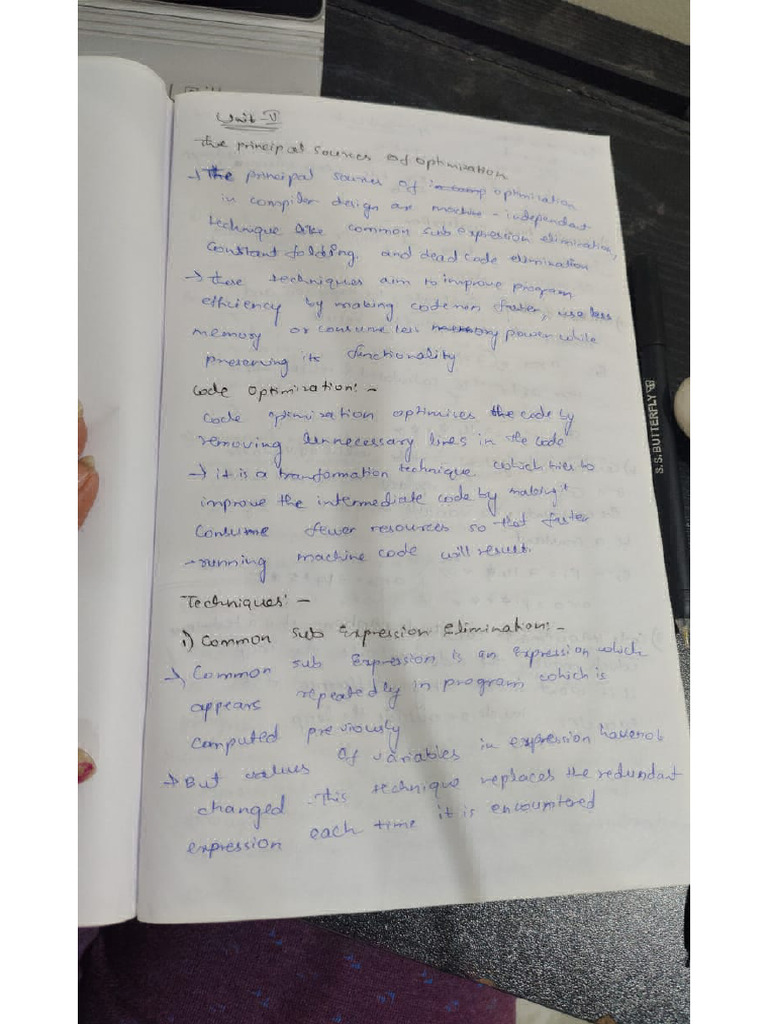 Unit-V
The principal sources of optimization
→ The principal sources of optimization
in compiler design are machine-independant
technique like common sub expression elimination,
constant folding and dead code elimination
→ these techniques aim to improve program
efficiency by making code run faster, use less
memory or consume less power while
preserving its functionality
Code Optimization:-
Code optimization optimizes the code by
removing unnecessary lines in the code
→ it is a transformation technique which tries to
improve the intermediate code by making
Consume fewer resources so that faster
-running machine code will result.
Techniques:-
1) Common sub Expression Elimination:-
→ Common sub Expression is an expression which
appears repeatedly in program which is
computed previously
→ But values of variables in expression have not
changed. This technique replaces the redundant
expression each time it is encountered
S.S. BUTTERFLY